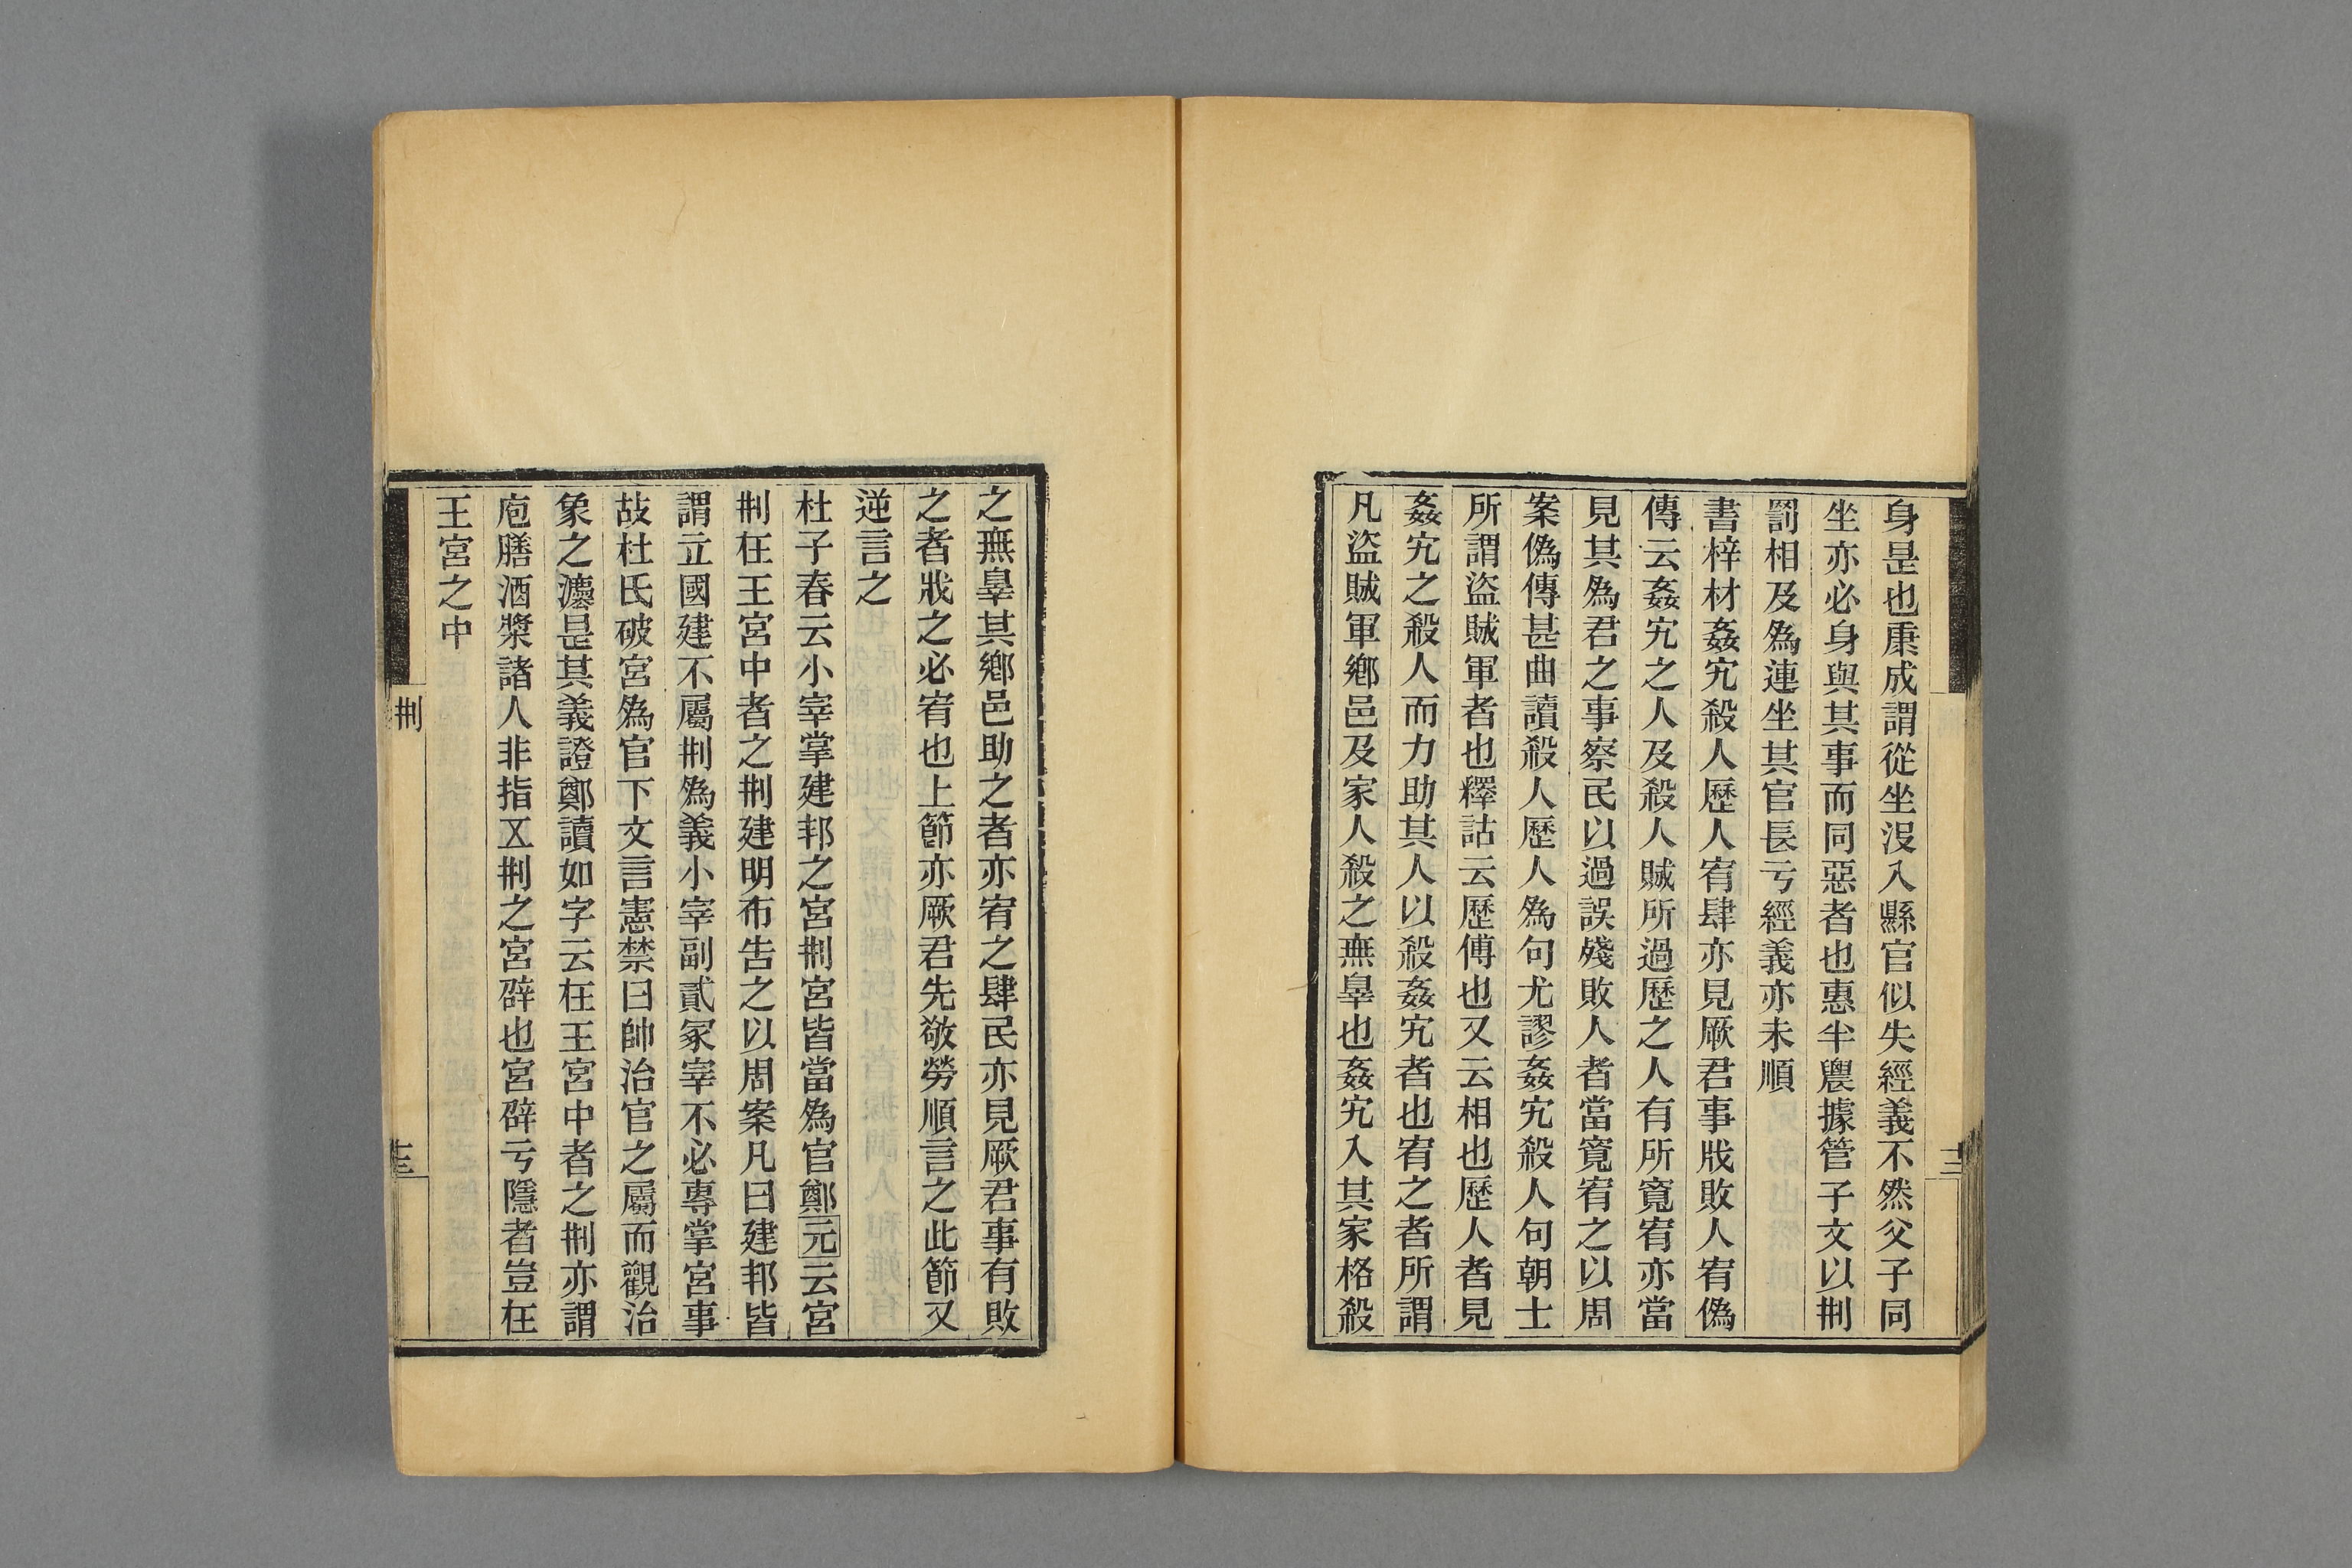 身是也康成謂從坐沒入縣官似失經義不然父子同
坐亦必身與其事而同惡者也惠半農據管子文以㓝
罰相及為連坐其官長亏經義亦未順
書梓材姦宄殺人歷人宥肆亦見厥君事戕敗人宥偽
傳云姦宄之人及殺人賊所過歷之人有所寬宥亦當
見其為君之事察民以過誤殘敗人者當寬宥之以周
案偽傳甚曲讀殺人歷人為句尤謬姦宄殺人句朝士
所謂盜賊軍者也釋詁云歷傅也又云相也歷人者見
姦宄之殺人而力助其人以殺姦宄者也宥之者所謂
凡盜賊軍鄉邑及家人殺之無辠也姦宄入其家格殺
之無辠其鄉邑助之者亦宥之肆民亦見厥君事有敗
之者戕之必宥也上節亦厥君先敬勞順言之此節又
逆言之
杜子春云小宰掌建邦之宮㓝宮皆當為官鄭元云宮
㓝在王宮中者之㓝建明布告之以周案凡曰建邦皆
謂立國建不屬㓝為義小宰副貳冢宰不必專掌宮事
故杜氏破宮為官下文言憲禁曰帥治官之屬而觀治
象之灋是其義證鄭讀如字云在王宮中者之㓝亦謂
庖膳酒漿諸人非指㐅㓝之宮辟也宮辟亏隱者豈在
王宮之中
㓝
十三